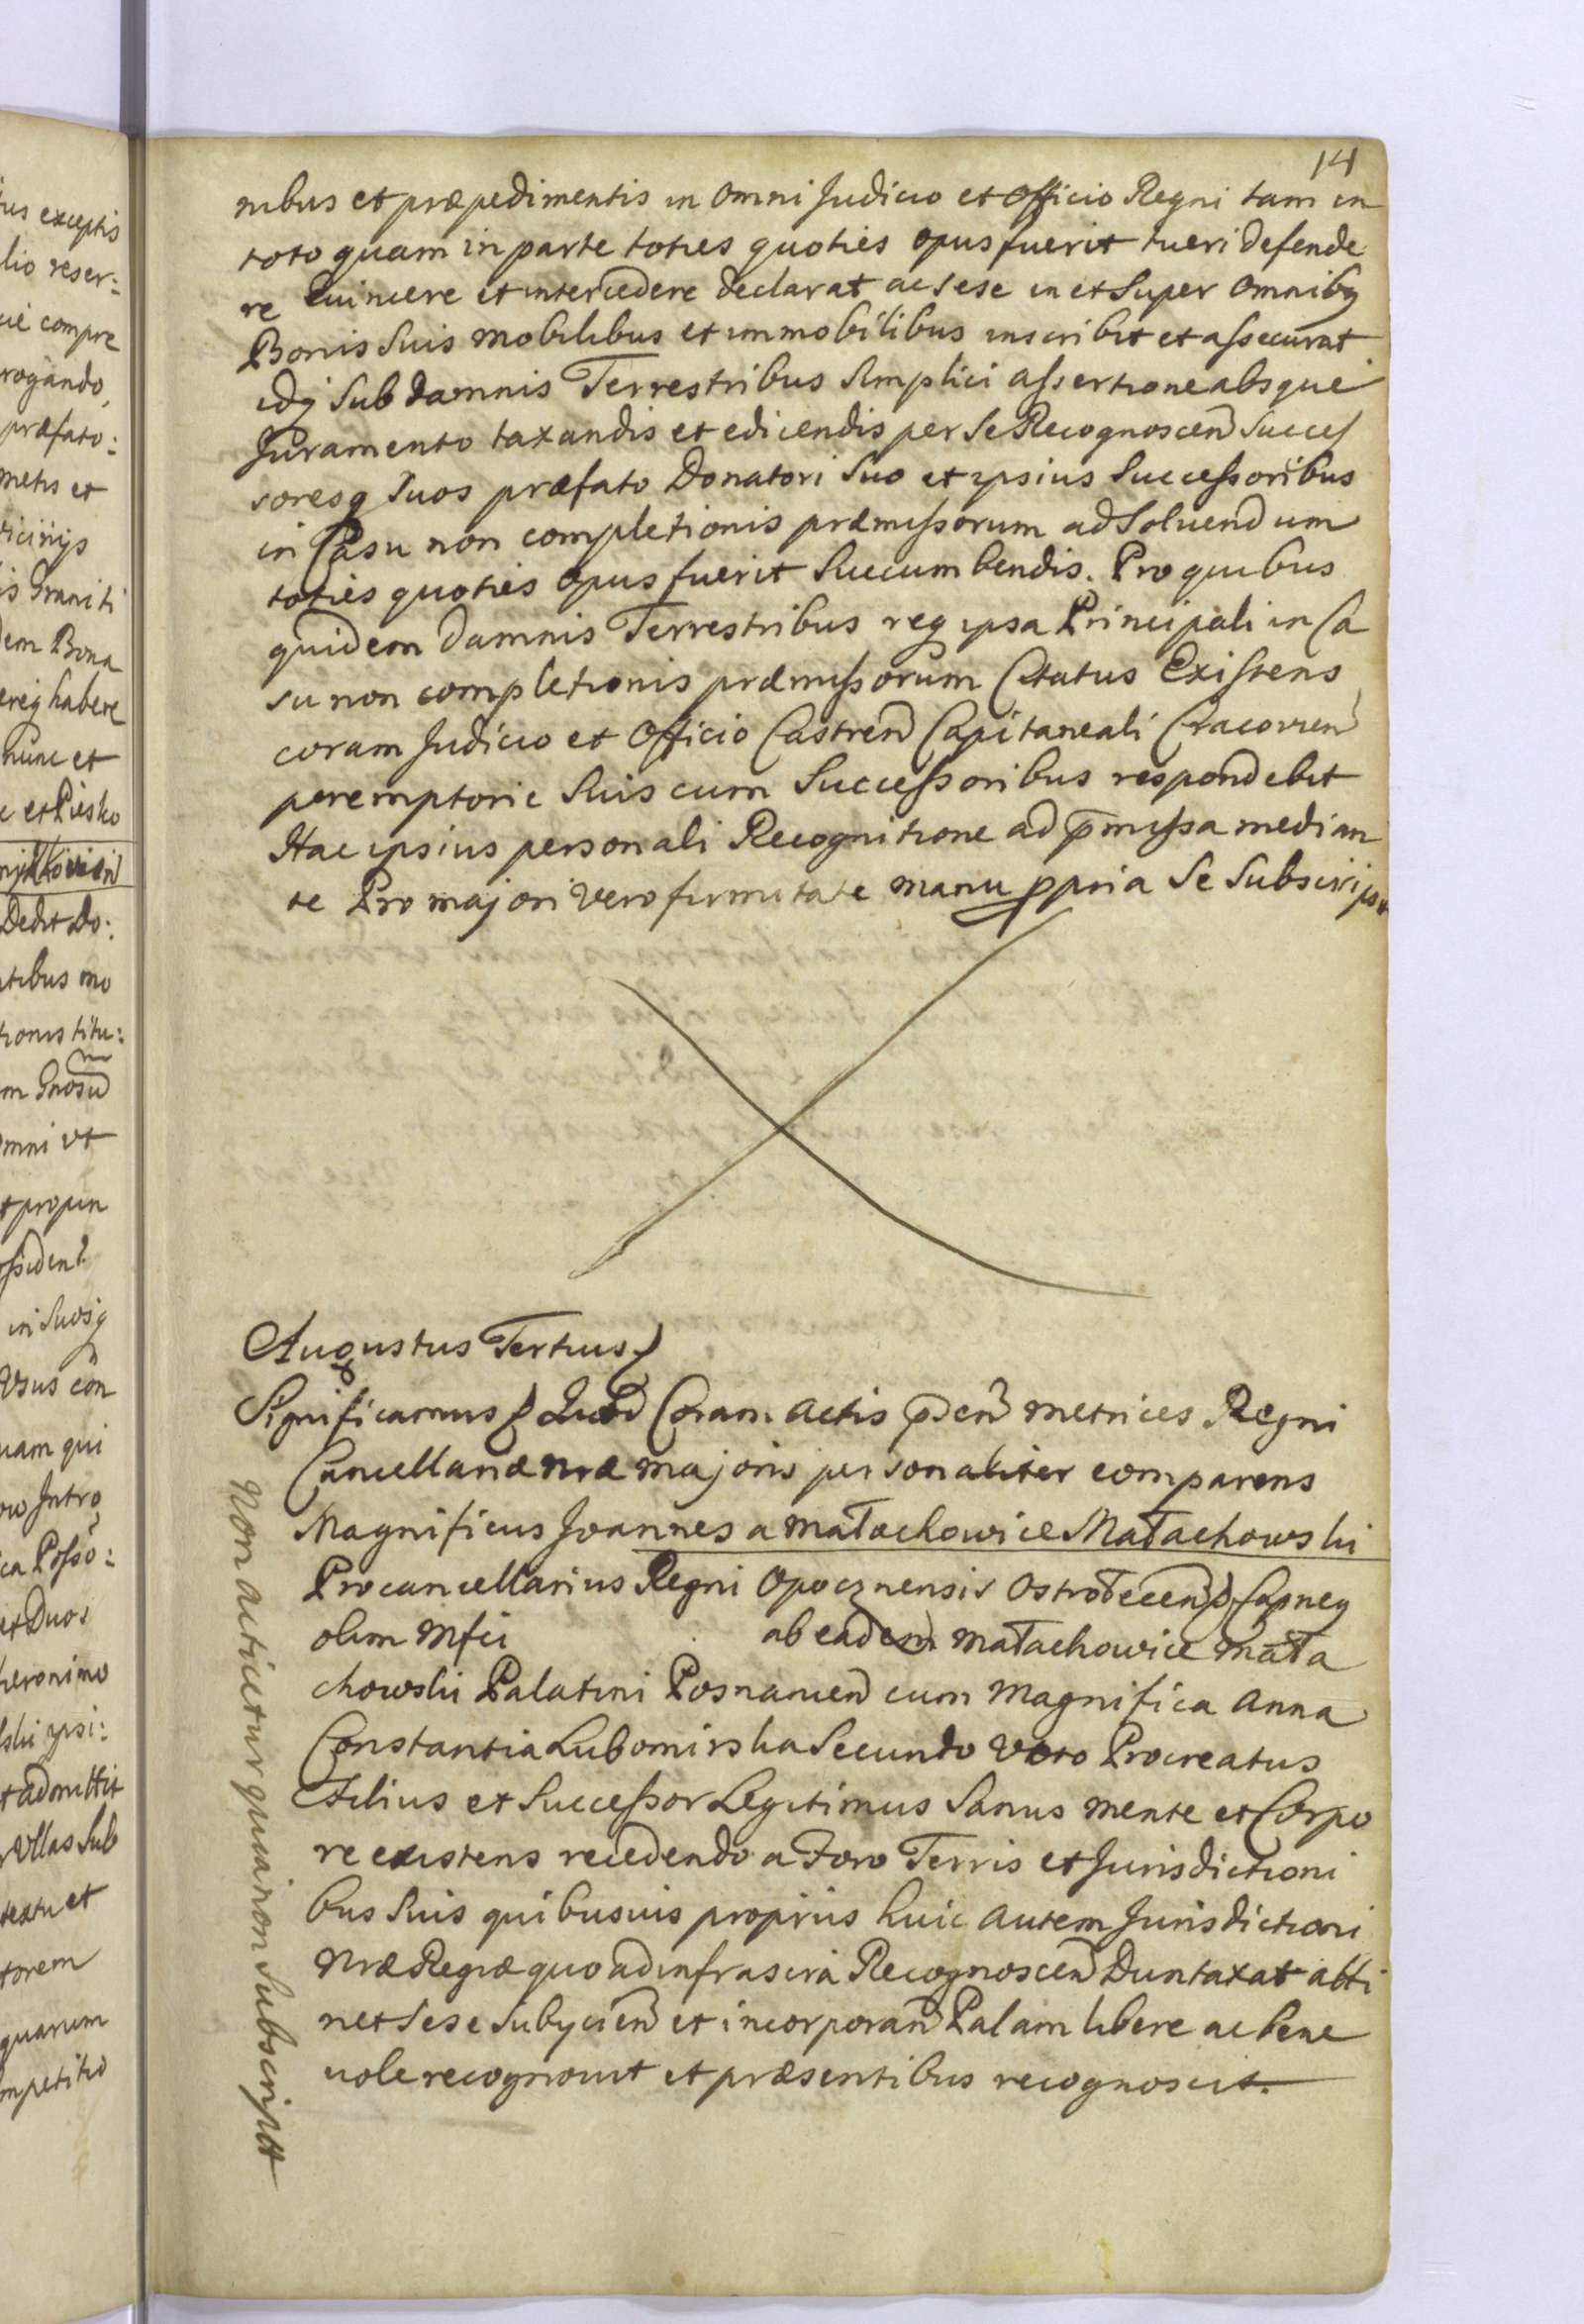 14
nibus et præpedimentis in Omni Judicio et Officio Regni tam in
toto quam in parte toties quoties opus fuerit tueri defende
re Euincere et intercedere declarat ac sese in et Super Omnibq
Bonis Suis mobilibus et immobilibus inscribit et assecurat
idq Sub damnis Terrestribus Simplici assertione absque
Juramento taxandis et edicendis per Se Recognoscen Succes
soresq Suos præfato Donatori Suo et ipsius Successoribus
in Casu non completionis præmissorum ad Soluendum
toties quoties Opus fuerit Succumbendis. Pro quibus
quidem damnis Terrestribus req ipsa Principali in Ca
su non completionis præmissorum Citatus Existens
coram Judicio et Officio Castren Capitaneali Cracovien
peremptorie Suis cum Successoribus respondebit
Hac ipsius personali Recognitione ad pmissa median
te Pro majori vero firmitate manu ppria Se Subscripst
Augustus Tertius
Significamus Quod Coram Actis pden metrices Regni
Cancellariæ nræ majoris personaliter comparens
Magnificus Joannes a Małachowice Małachowski
Procancellarius Regni Opocznensis Ostrołecen Capneq
olim Mfci ab eadem Małachowice Mała
chowski Palatini Posnanien cum Magnifica Anna
Constantia Lubomirska Secundo Voto Procreatus
Filius et Successor Legitimus Sanus mente et Corpo
re existens recedendo a Foro Terris et Jurisdictioni
bus Suis quibusuis propriis huic autem Jurisdictioni
Nræ Regiæ quo ad infrascra Recognoscen Duntaxat atti
net Sese Subijcien et incorporan Palam libere ac bene
uole recognouit et præsentibus recognoscit.
Non acticetur quia non Subscripsit
us exceptis
lio reser:
ie compre
rogando,
præfato:
metis et
ticinijs
is Graniti
dem Bona
ereq habere
hunc et
c et Piesko
Dedit Do:
tibus mo
tionis titu:
m Gnosu
omni vt
t propin
ssident
in Suosq
Vsus con
uam qui
Intro
ca Posso:
et Duos
heronimo
ski ipsi:
t admittit
Vllas Sub
textu et
torem
quarum
mpetitio